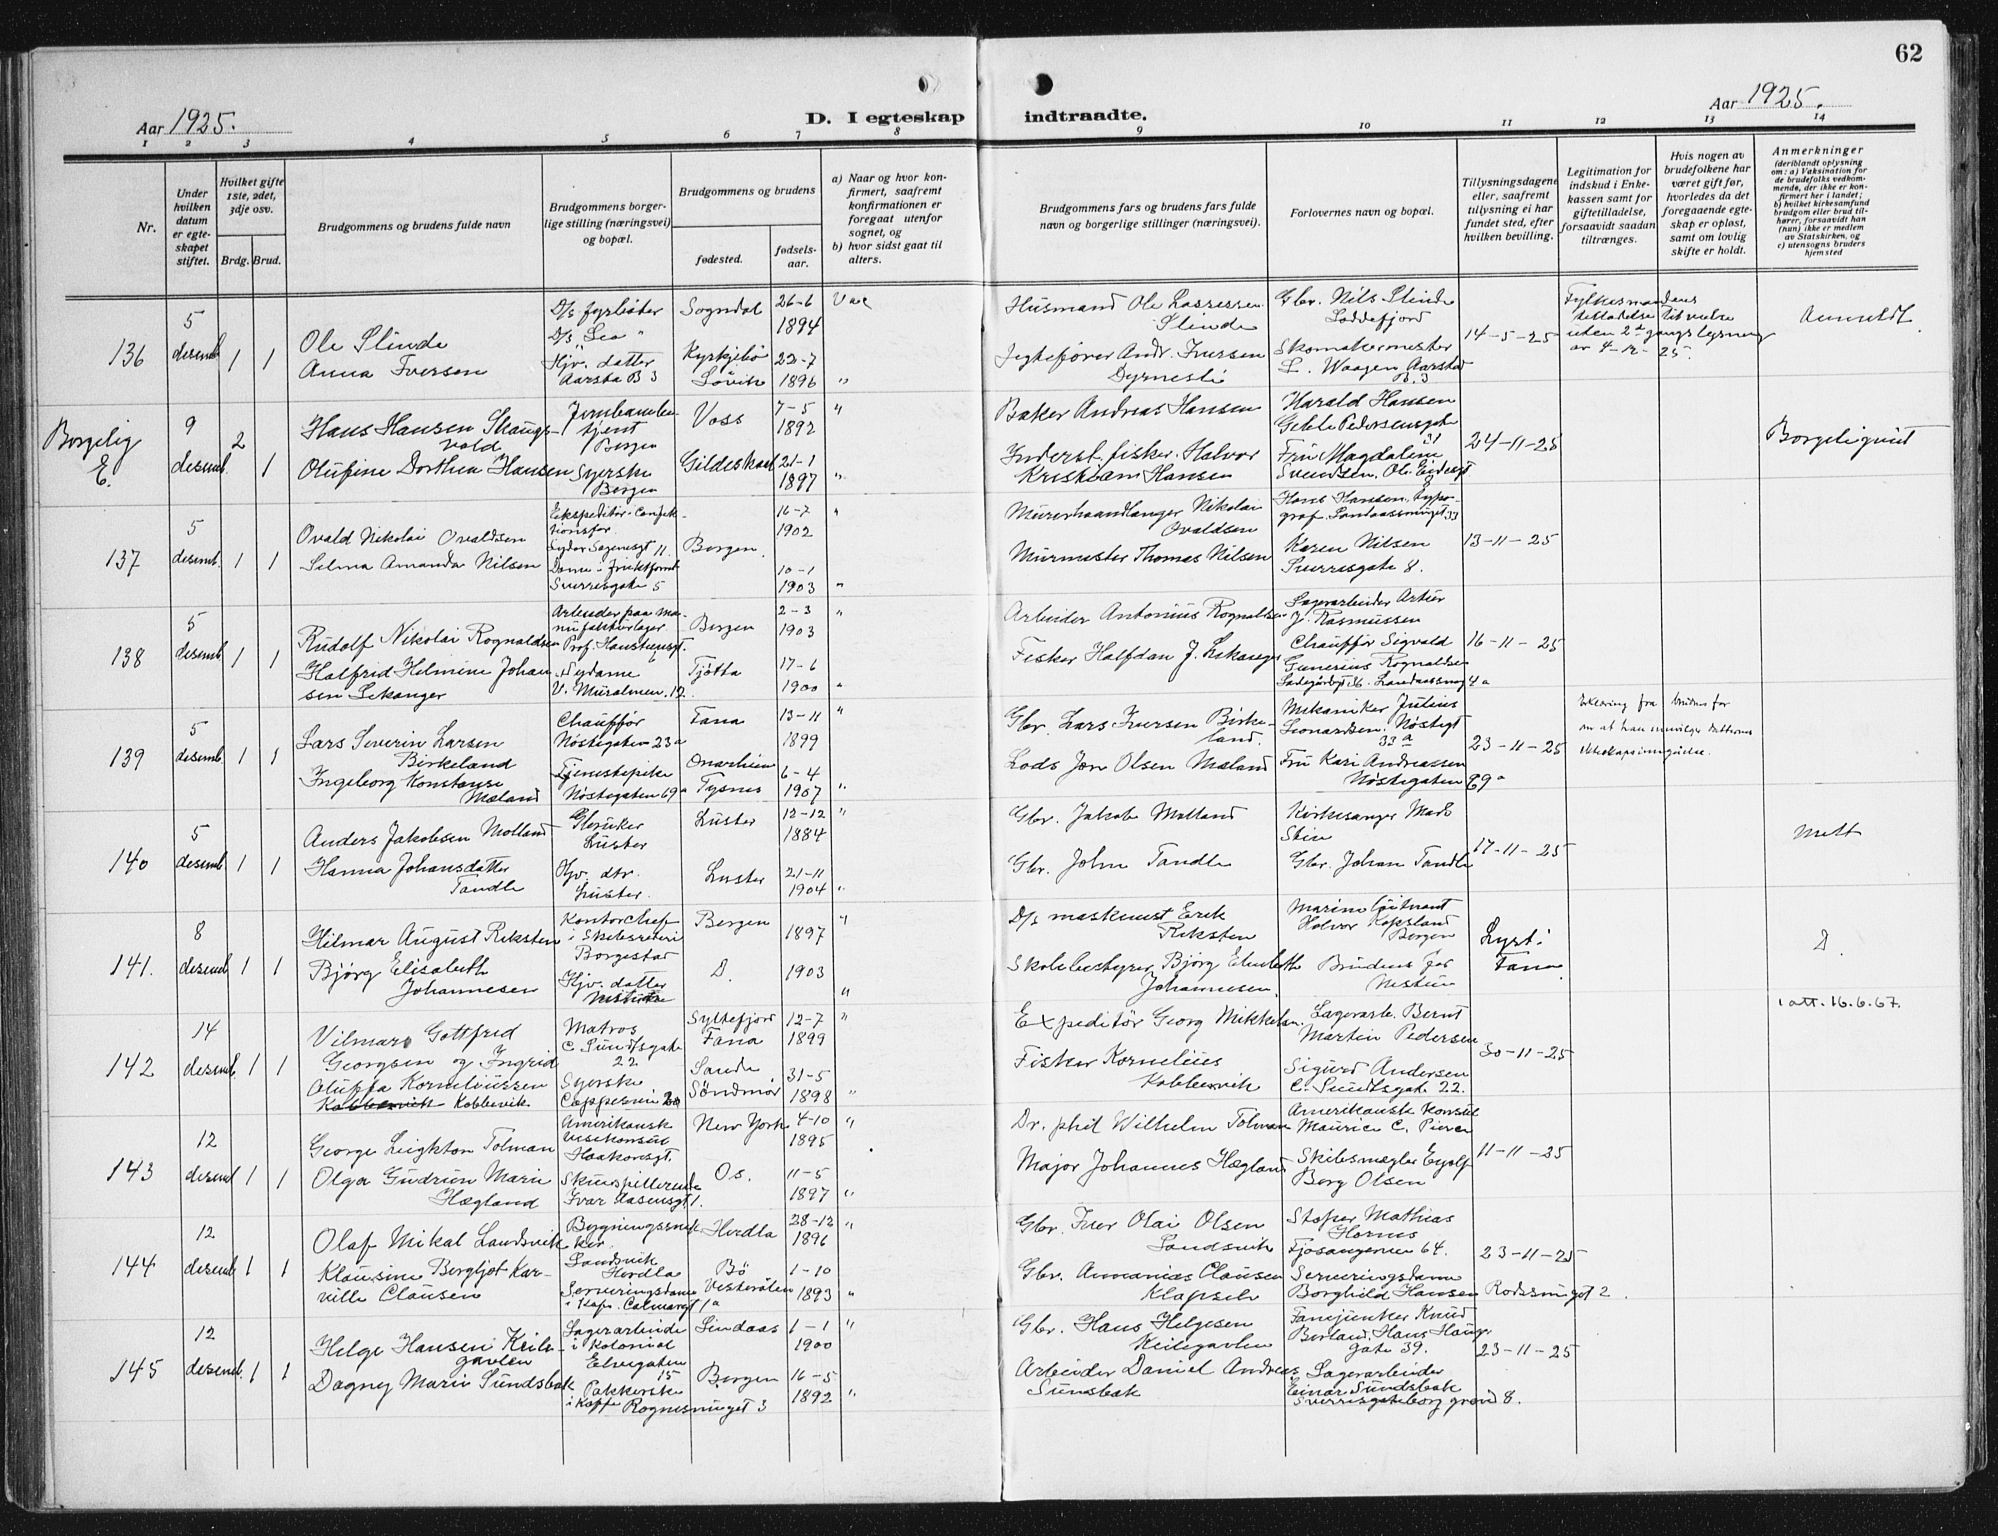 62
Aar 1925.
D. I egteskap indtraadte.
Aar 1925.
1 2 3 4 5 6 7 8 9 10 11 12 13 14
Nr.
Under hvilken datum er egteskapet stiftet.
Hvilket gifte 1ste, 2det, 3dje osv.
Brdg. Brud.
Brudgommens og brudens fulde navn
Brudgommens borgerlige stilling (næringsvei) og bopæl.
Brudgommens og brudens
fødested.
fødselsaar.
a) Naar og hvor konfirmert, saafremt konfirmationen er foregaat utenfor sognet, og
b) hvor sidst gaat til alters.
Brudgommens fars og brudens fars fulde navn og borgerlige stillinger (næringsvei).
Forlovernes navn og bopæl.
Tillysningsdagene eller, saafremt tillysning ei har fundet sted, efter hvilken bevilling.
Legitimation for indskud i Enkekassen samt for giftetilladelse, forsaavidt saadan tiltrænges.
Hvis nogen av brudefolkene har været gift før, hvorledes da det foregaaende egteskap er opløst, samt om lovlig skifte er holdt.
Anmerkninger
(deriblandt oplysning om: a) Vaksination for de brudefolks vedkommende, der ikke er konfirmert her i landet;
b) hvilket kirkesamfund brudgom eller brud tilhører, forsaavidt han (hun) ikke er medlem av Statskirken, og
c) utensogns bruders hjemsted
136
5 desemb.
1 1
Ole Slinde
Anna Iversen
D/s fyrbøter
D/s "Leo"
Hjv. datter
Aarsta B 3
Sogndal
Kyrkjebø
Løvik
26-6
1894
23-7
1896
"
Husmand Ole Lassesen
Slinde
Jegtefører Andr. Iversen
Dyrnesli
Gbr. Nils Slinde
Loddefjord
Skomakermester
L. Waagen Aarstad
B. 3
14-5-25
Fylkesmandens
tilladelse til vielse
uten 2den gangs lysning
av 4-12-25.
Anmeldt
Borgelig
E.
9 desemb.
2
1
Hans Hansen Skaugs-
vold
Olufine Dorthea Hansen
Jernbanebe-
tjent
Bergen
Syerske
Bergen
Voss
Gildeskaal
7-5
1892
21-1
1897
"
"
Baker Andreas Hansen
Inderst, fisker, Halvor
Kristian Hansen
Harald Hansen
Geble Pedersensgate
31
Fru Magdalene
Svendsen, Ole
24-11-25
Borgeligviet
137
5 desemb.
1 1
Ovald Nikolai Ovaldsen
Selma Amanda Nilsen
Ekspeditør-Confek-
tionsfor.
Dame i fruktforret
Sverresgate 5
Bergen
16-7
1902
10-1
1903
"
"
Murerhaandlanger Nikolai
Ovaldsen
Murmester Thomas Nilsen
Hans Hansen, Typo-
graf. Landaassvinget 33
Karen Nilsen
Sverresgate 8.
13-11-25
138
5 desemb.
1 1
Rudolf Nikolai Rognaldsen
Halfrid Helmine Johan
sen Lekanger
Arbeider paa ma-
nufakturlager
Prof. Hansteensgt.
Sydame
V. Muralmen. 12.
Bergen
Tjøtta
2-3
1903
17-6
1900
"
"
Arbeider Antonius Rognaldsen
Fisker Halfdan J. Lekanger
Lagerarbeider Artur
J. Rasmussen
Chauffør Sigvald
Gunerius Rognaldsen
16-11-25
139
5 desemb.
1 1
Lars Severin Larsen
Birkeland
Ingeborg Konstanse
Mæland
Chauffør
Nøstegaten 23a
Tjenestepike
Nøstegaten 69a
Fana
Onarheim
Tysnes
13-11
1899
6-4
1907
"
"
Gbr. Lars Iversen Birke-
land.
Lods Jon Olsen Mæland
Mekaniker Julius
Leonardsen. Nøstegt
33a
Fru Kari Andreassen
Nøstegaten 69a
23-11-25
Erklæring fra brudens far
om at han innvilger datterens
ekteskapsinngåelse.
140
5 desemb.
1 1
Anders Jakobsen Molland
Hanna Johansdatter
Tandle
Gbruker
Luster
Hjv. dtr.
Luster.
Luster
Luster
12-12
1884
21-11
1904
"
"
Gbr. Jakob Molland
Gbr. John Tandle
Kirkesanger Mark
Skin
Gbr. Johan Tandle
17-11-25
141.
8 desemb.
1 1
Hilmar August Reksten
Bjørg Elisabeth
Johannesen
Kontorchef
i Skibsrederi
Borgestad
Hjv. datter
Nesttun
Bergen
D.
1897
1903
"
"
D/s maskinist Erik
Reksten
Skolebestyrer Bjørg Elisabeth
Johannesen.
Marineløitnant
Halvor Kopsland
Bergen
Brudens far
Nestun
Lyst i
Fana
D.
1 att. 16.6.67.
142
14 desemb.
1 1
Vilmar Gottfrid
Georgsen og Ingrid
Oluffa Korneliussen
Kobbervik Kobbevik
Matros
C. Sundtsgate
22
Syerske
Cappesvei 20
Syltefjord
Fana
Sande
Søndmør
12-7
1899
31-5
1898
"
"
Expeditør Georg Mikkelsen
Fisker Kornelius
Kobbervik
Lagerarb. Bernt
Martin Pedersen
Sigurd Andersen
C. Sundtsgat. 22.
30-11-25
143
12 desemb
1 1
George Leighton Tolman
Olga Gudrun Marie
Hægland
Amerikansk
visekonsul
Haakonsgt.
Skuespillerinde
Ivar Aasensgt 1.
New York
Os.
4-10
1895
11-5
1897
"
"
Dr. phil Wilhelm Tolman
Major Johannes Hægland
Amerikansk Konsul
Maurice C. Pierce
Skibsmegler Eyolf
Borg Olsen
11-11-25
144
12 desemb
1 1
Olaf Mikal Landsvik
Klausine Bergljot Kar-
ville Clausen
Bygningssnek
ker.
Landsvik
Herdla
Serveringsdame
i Kafe. Calmargt 1a
Herdla
Bø
Vesterålen
28-12
1896
1-10
1893
"
"
Gbr. Iver Olai Olsen
Landsvik
Gbr. Annanias Clausen
Støper Mathias
Hornes
Fjøsangerveien 64.
Serveringsdame
Borghild Hansen
23-11-25
145
12 desemb.
1 1
Helge Hansen Keile-
gavlen
Dagny Marie Sundsbak
Lagerarbeide
i Kolonial
Elvegaten
15
Pakkerske
Rognesvinget 3
Lindaas
Bergen
1-1
1900
16-5
1892
"
"
Gbr. Hans Helgesen
Keilegavlen
Arbeider Daniel Andreas
Sundsbak
Fanejunker Knud
Berland, Hans Hauges
gate 39.
Lagerarbeider
Einar Sundsbak
23-11-25